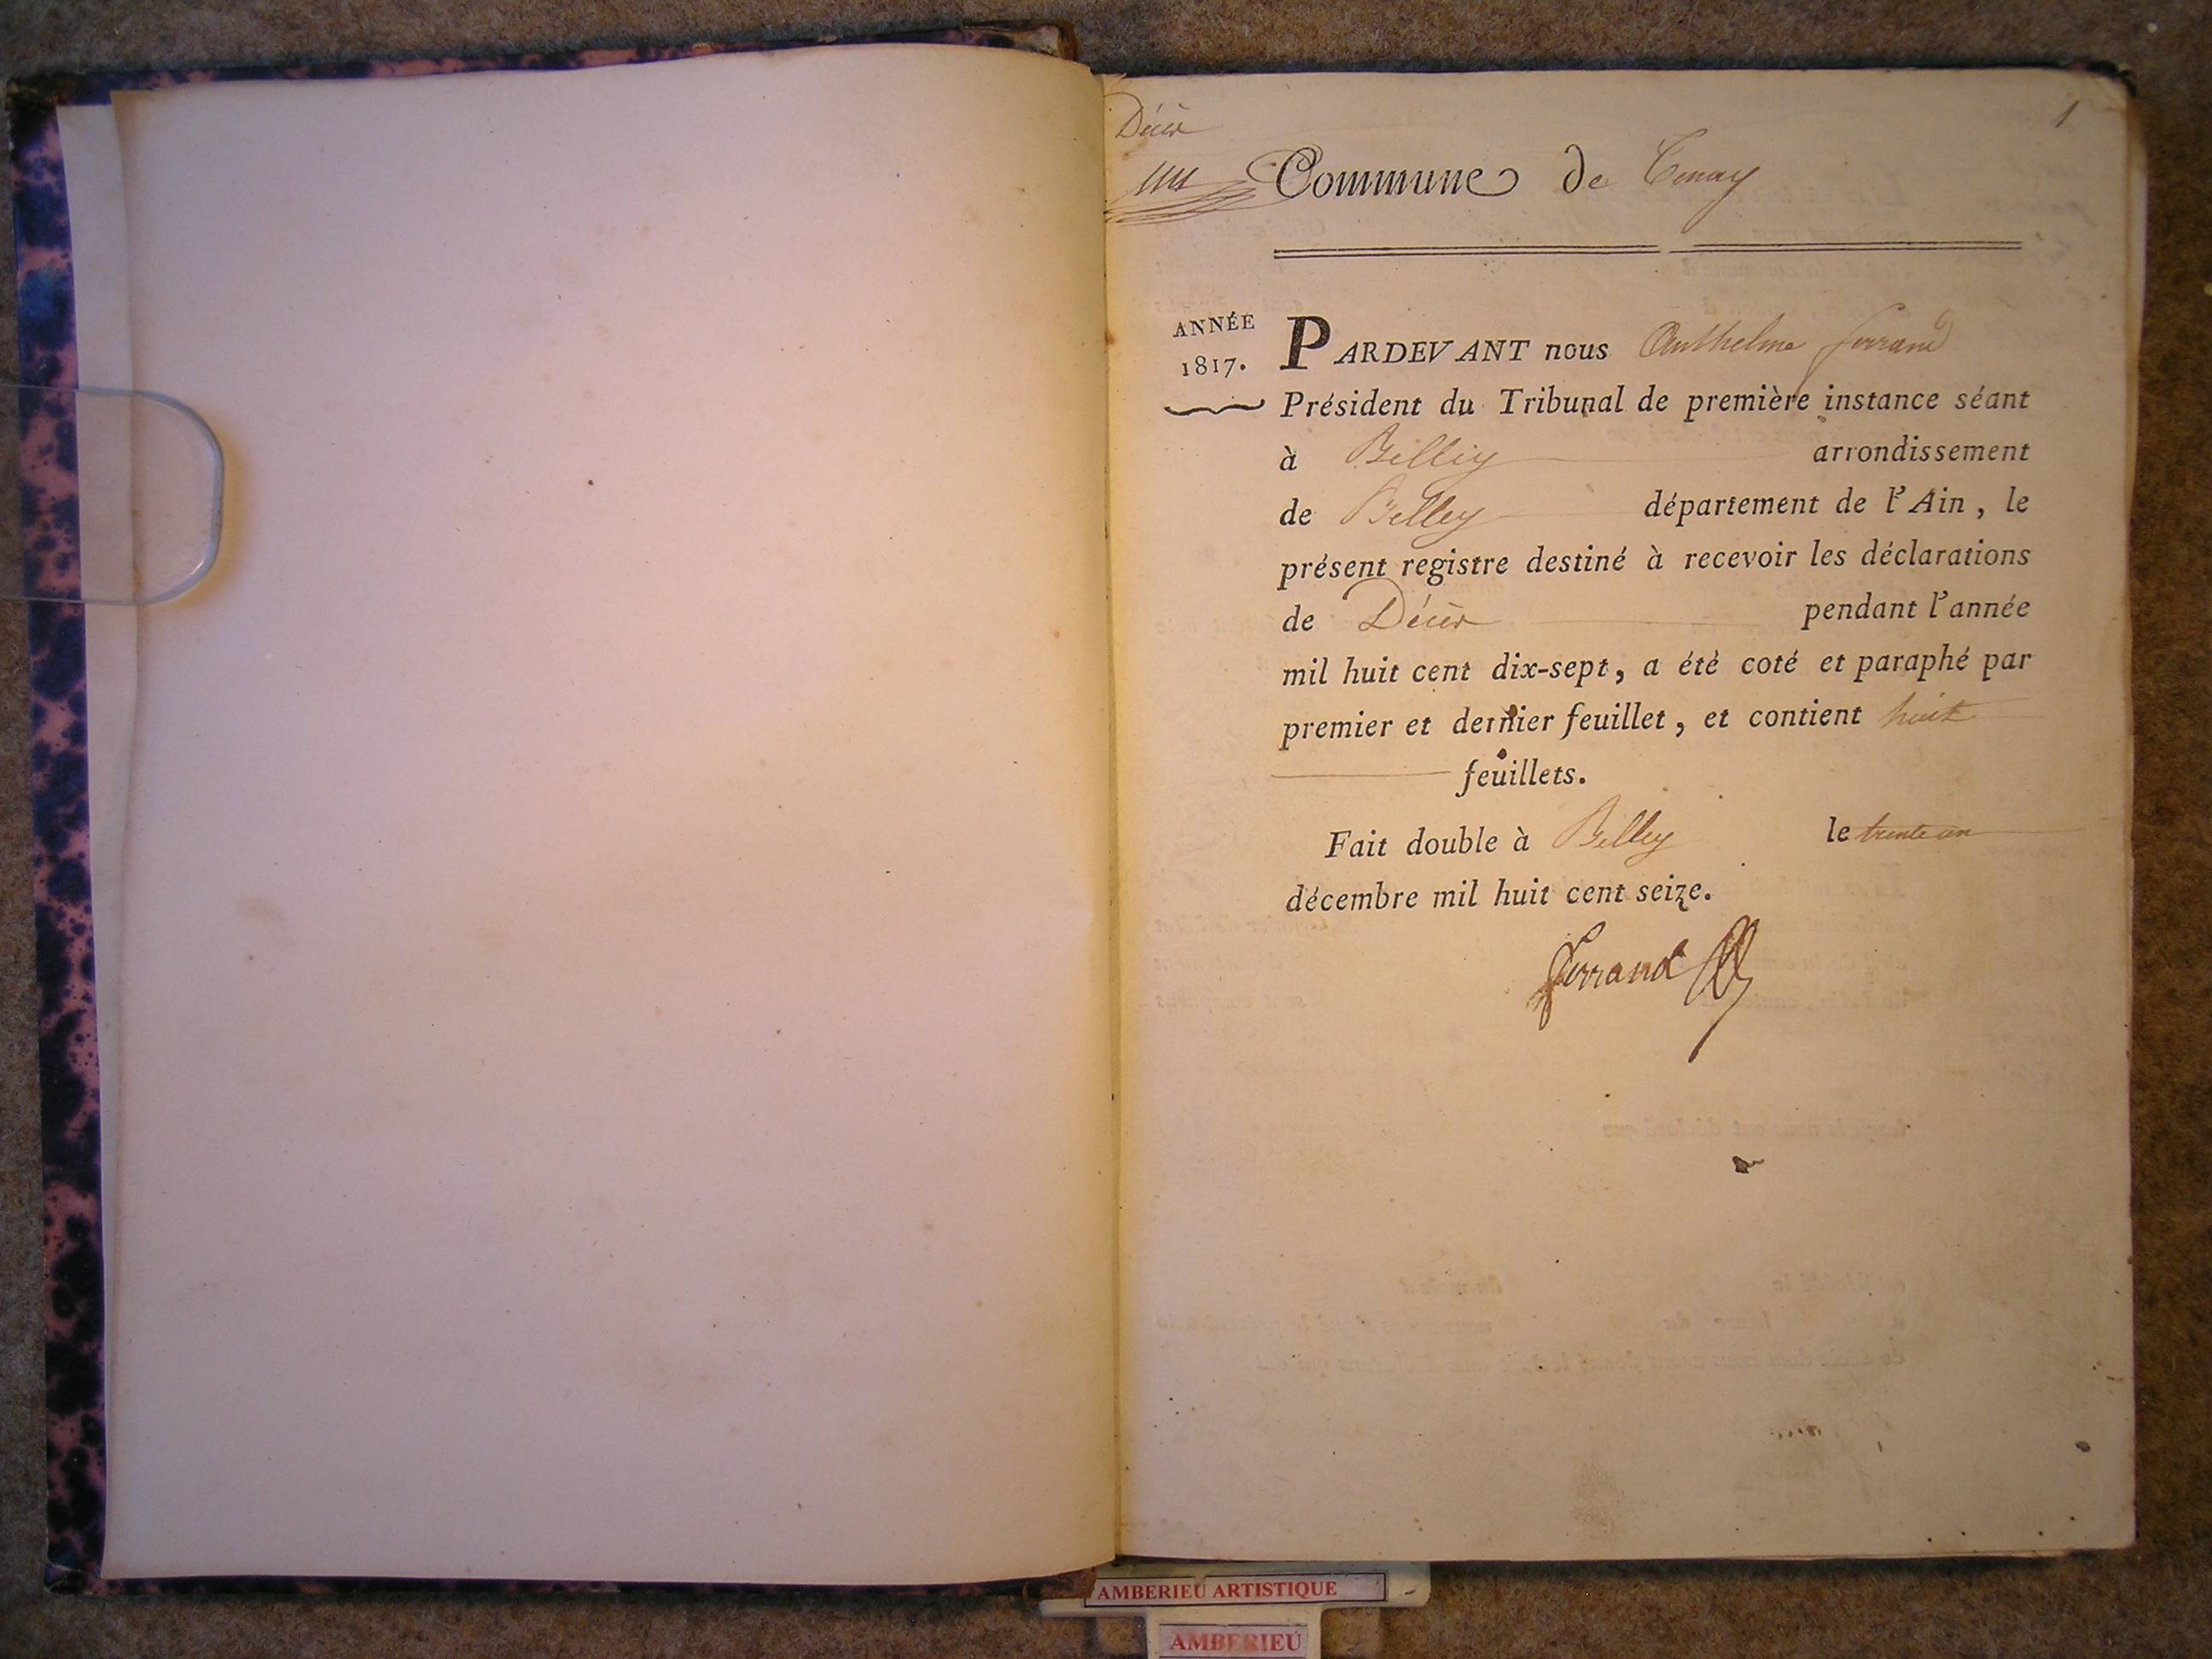 Décès
1
Commune de Tenay
ANNÉE
1817.
PARDEVANT nous Anthelme ferrand
Président du Tribunal de première instance séant
à Belley arrondissement
de Belley département de l'Ain, le
présent registre destiné à recevoir les déclarations
de Décès pendant l'année
mil huit cent dix-sept, a été coté et paraphé par
premier et dernier feuillet, et contient huit
feuillets.
Fait double à Belley le trente un
décembre mil huit cent seize.
ferrand
AMBERIEU ARTISTIQUE
AMBERIEU